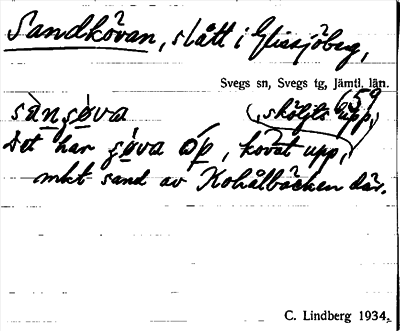 Sandkövan, slått i Glissjöberg,
Svegs sn, Svegs tg, Jämtl. län.
659
sàn̥söva (, sköljts upp,)
Det har söva óp, kovat upp,
mkt sand av Kohålbäcken där.
C. Lindberg 1934.